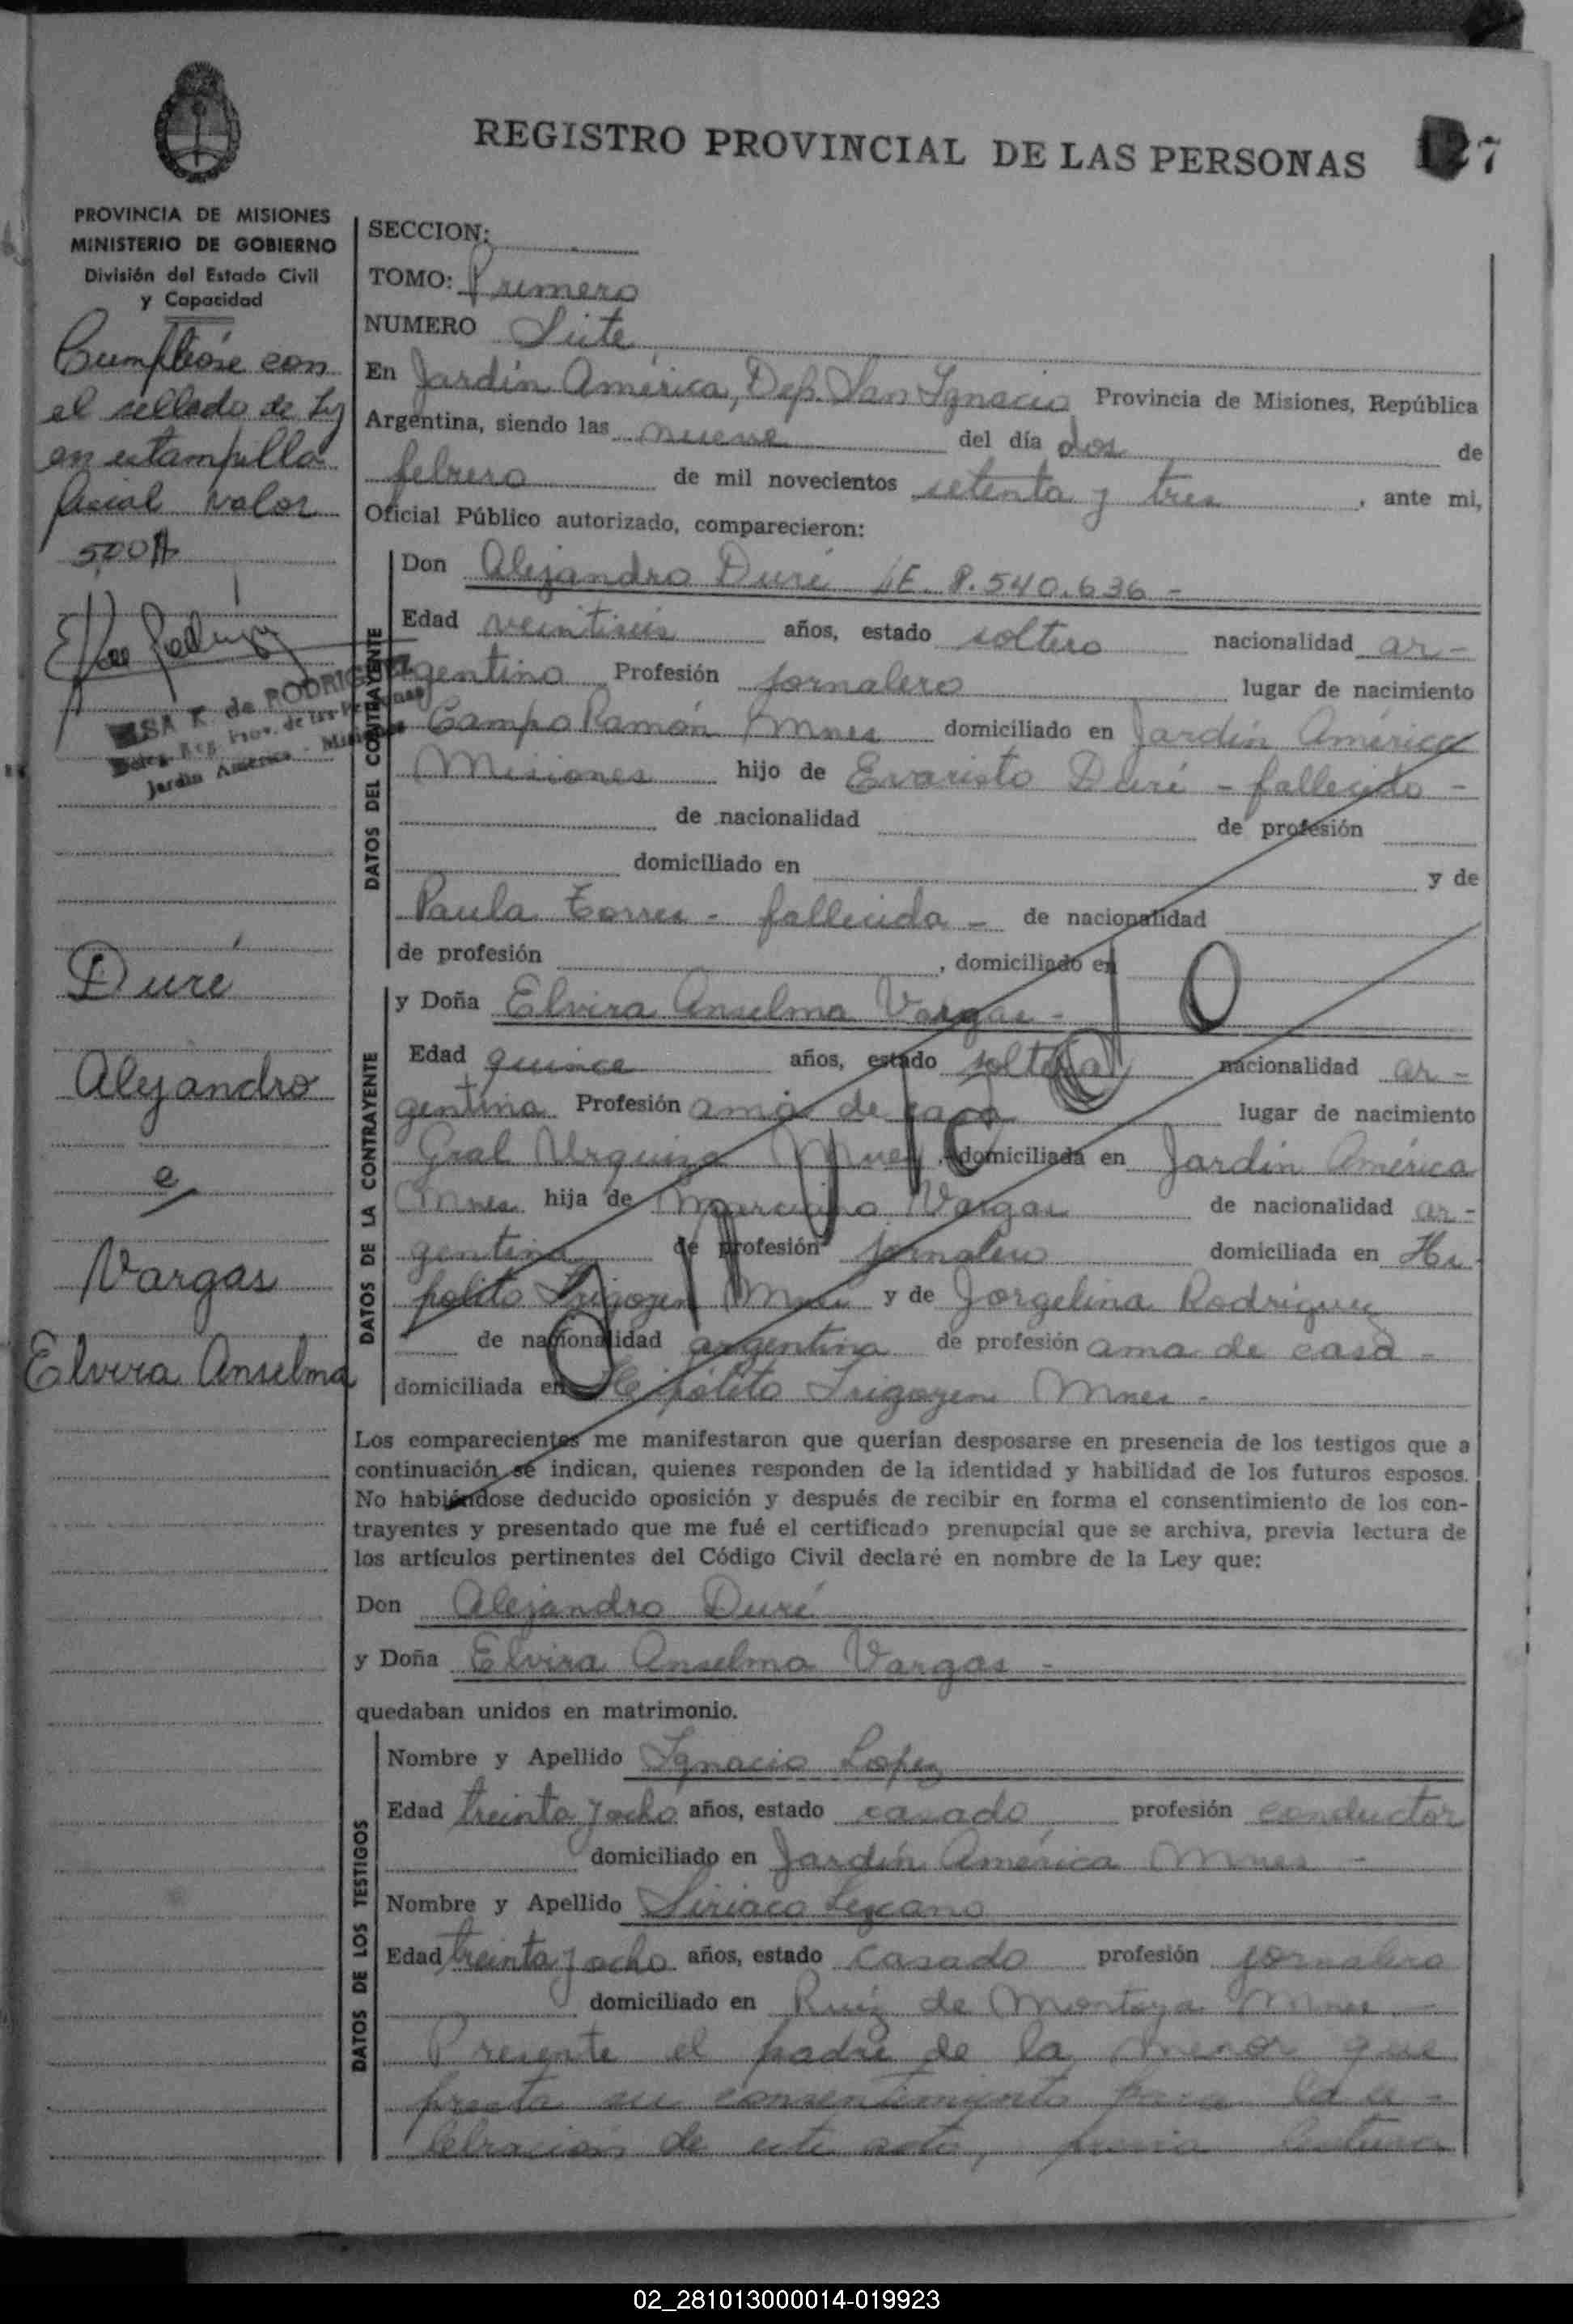 REGISTRO PROVINCIAL DE LAS PERSONAS
7
PROVINCIA DE MISIONES
MINISTERIO DE GOBIERNO
División del Estado Civil
y Capacidad
Cumplióse con
el sellado de Ley
en estampilla
fiscal valor
500
ELSA K. de RODRIGUEZ
Deleg. Reg. Prov. de las Personas
Jardín América - Misiones
Duré
Alejandro
e
Vargas
Elvira Anselma
SECCION:
TOMO: Primero
NUMERO Siete
En Jardín América, Dep. San Ignacio Provincia de Misiones, República
Argentina, siendo las nueve del día dos de
febrero de mil novecientos setenta y tres, ante mi,
Oficial Público autorizado, comparecieron:
DATOS DEL CONTRAYENTE
Don Alejandro Duré LE. 8.540.636 -
Edad veintiseis años, estado soltero nacionalidad ar-
gentino Profesión jornalero lugar de nacimiento
Campo Ramón Mnes domiciliado en Jardín América
Misiones hijo de Evaristo Duré - fallecido -
de nacionalidad de profesión
domiciliado en y de
Paula Torres - fallecida - de nacionalidad
de profesión , domiciliado en
DATOS DE LA CONTRAYENTE
y Doña Elvira Anselma Vargas -
Edad quince años, estado soltera nacionalidad ar-
gentina Profesión ama de casa lugar de nacimiento
Gral Urquiza Mnes, domiciliada en Jardín América
Mnes hija de Marciano Vargas de nacionalidad ar-
gentina de profesión jornalero domiciliada en Hi-
polito Irigoyen Mnes y de Jorgelina Rodriguez
de nacionalidad argentina de profesión ama de casa -
domiciliada en Hipólito Irigoyen Mnes -
ANULADO
Los comparecientes me manifestaron que querían desposarse en presencia de los testigos que a
continuación se indican, quienes responden de la identidad y habilidad de los futuros esposos.
No habiéndose deducido oposición y después de recibir en forma el consentimiento de los con-
trayentes y presentado que me fué el certificado prenupcial que se archiva, previa lectura de
los artículos pertinentes del Código Civil declaré en nombre de la Ley que:
Don Alejandro Duré
y Doña Elvira Anselma Vargas -
quedaban unidos en matrimonio.
DATOS DE LOS TESTIGOS
Nombre y Apellido Ignacio Lopez
Edad treinta y ocho años, estado casado profesión conductor
domiciliado en Jardín América Mnes -
Nombre y Apellido Siriaco Lezcano
Edad treinta y ocho años, estado casado profesión jornalero
domiciliado en Ruiz de Montoya Mnes -
Presente el padre de la menor que
presta su consentimiento para la ce-
lebración de este acto, previa lectura
02_281013000014-019923